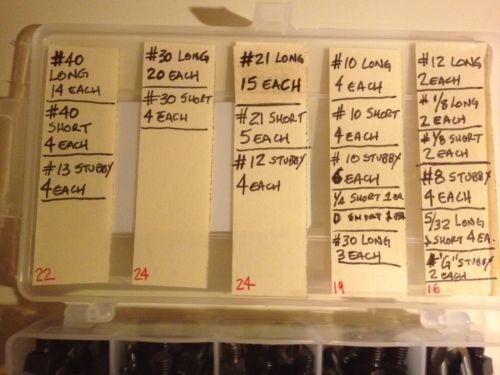 #40
LONG
14 EACH
#40
SHORT
4 EACH
#13 STUBBY
4 EACH
22
#30 LONG
20 EACH
#30 SHORT
4 EACH
24
#21 LONG
15 EACH
#21 SHORT
5 EACH
#12 STUBBY
4 EACH
24
#10 LONG
4 EACH
#10 SHORT
4 EACH
#10 STUBBY
6 EACH
1/4 SHORT 1 EA
D SHORT 1 EA
#30 LONG
3 EACH
19
#12 LONG
2 EACH
# 1/8 LONG
2 EACH
# 1/8 SHORT
2 EACH
#8 STUBBY
4 EACH
5/32 LONG
SHORT 4 EA.
#"G" STUBBY
2 EACH
16